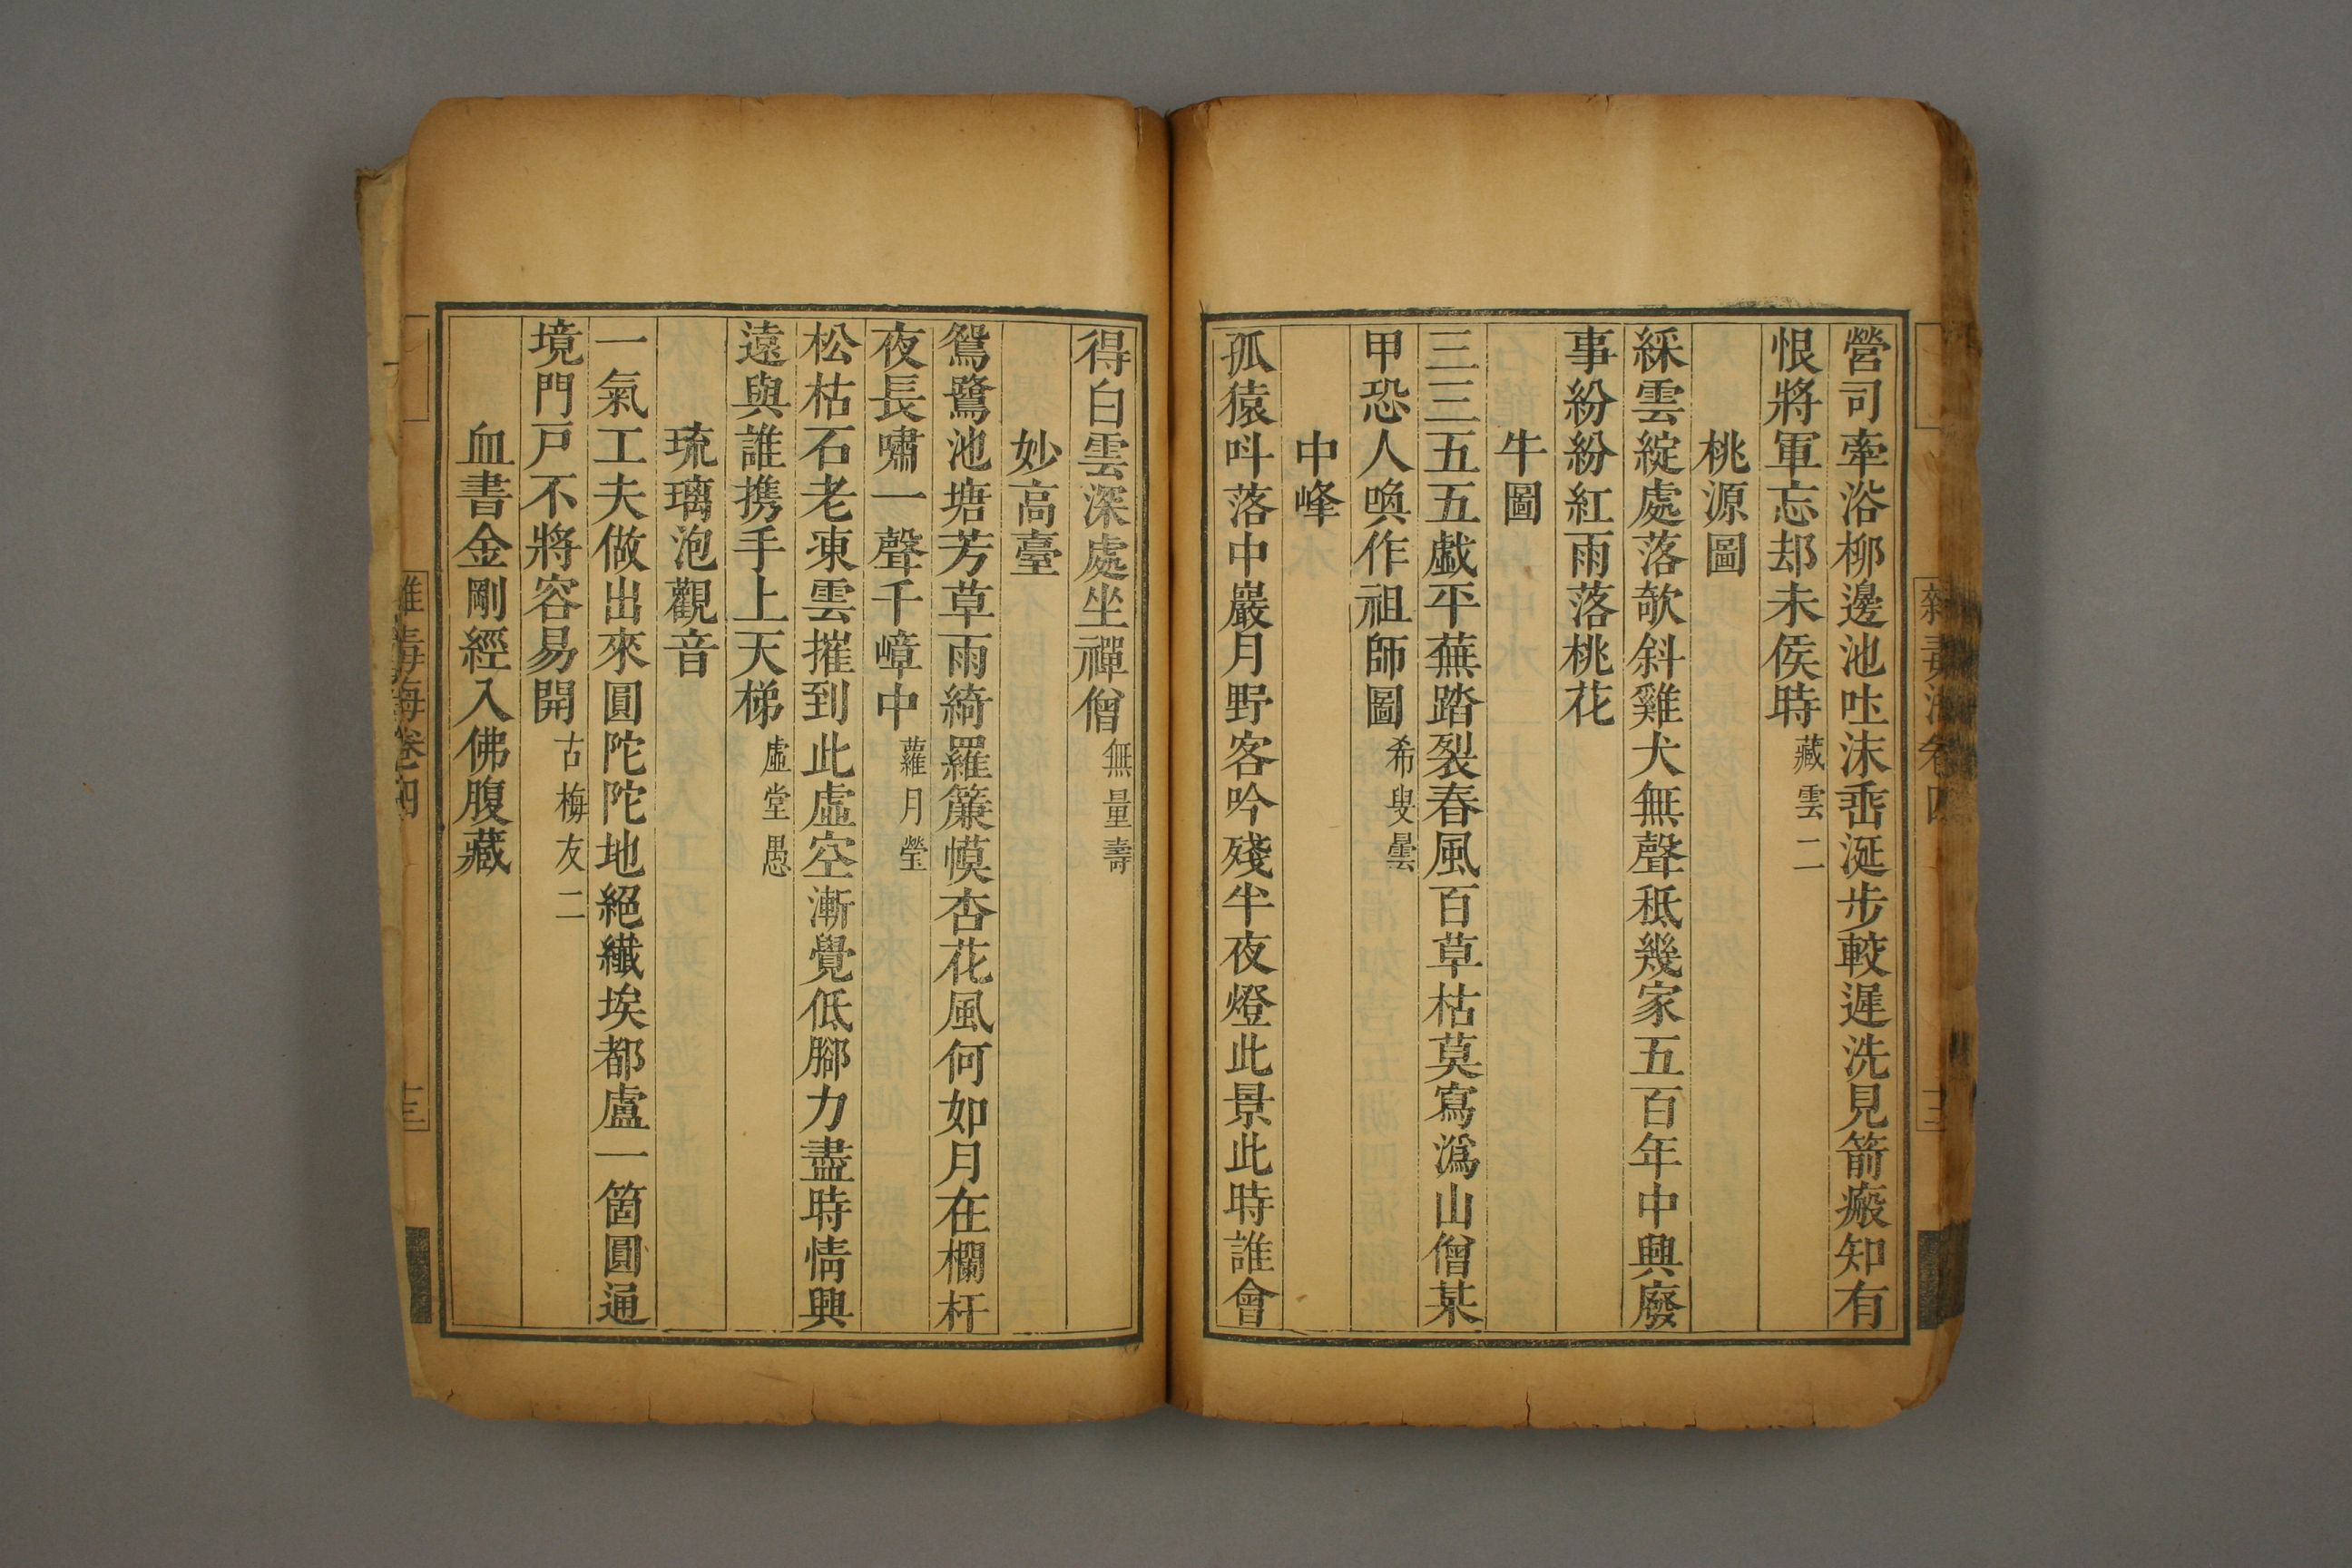 營司牽浴柳邊池吐沫垂涎步較遲洗見箭瘢知有
恨將軍忘却未侯時 藏雲二
桃源圖
綵雲綻處落欹斜雞犬無聲秪幾家五百年中興廢
事紛紛紅雨落桃花
牛圖
三三五五戲平蕪踏裂春風百草枯莫寫潙山僧某
甲恐人喚作祖師圖 希叟曇
中峰
孤猿呌落中巖月野客吟殘半夜燈此景此時誰會
得白雲深處坐禪僧 無量壽
妙高臺
鴛鷺池塘芳草雨綺羅簾幙杏花風何如月在欄杆
夜長嘯一聲千嶂中 蘿月瑩
松枯石老凍雲摧到此虛空漸覺低腳力盡時情興
遠與誰携手上天梯 虛堂愚
琉璃泡觀音
一氣工夫做出來圓陀陀地絕纖埃都盧一箇圓通
境門戸不將容易開 古梅友二
血書金剛經入佛腹藏